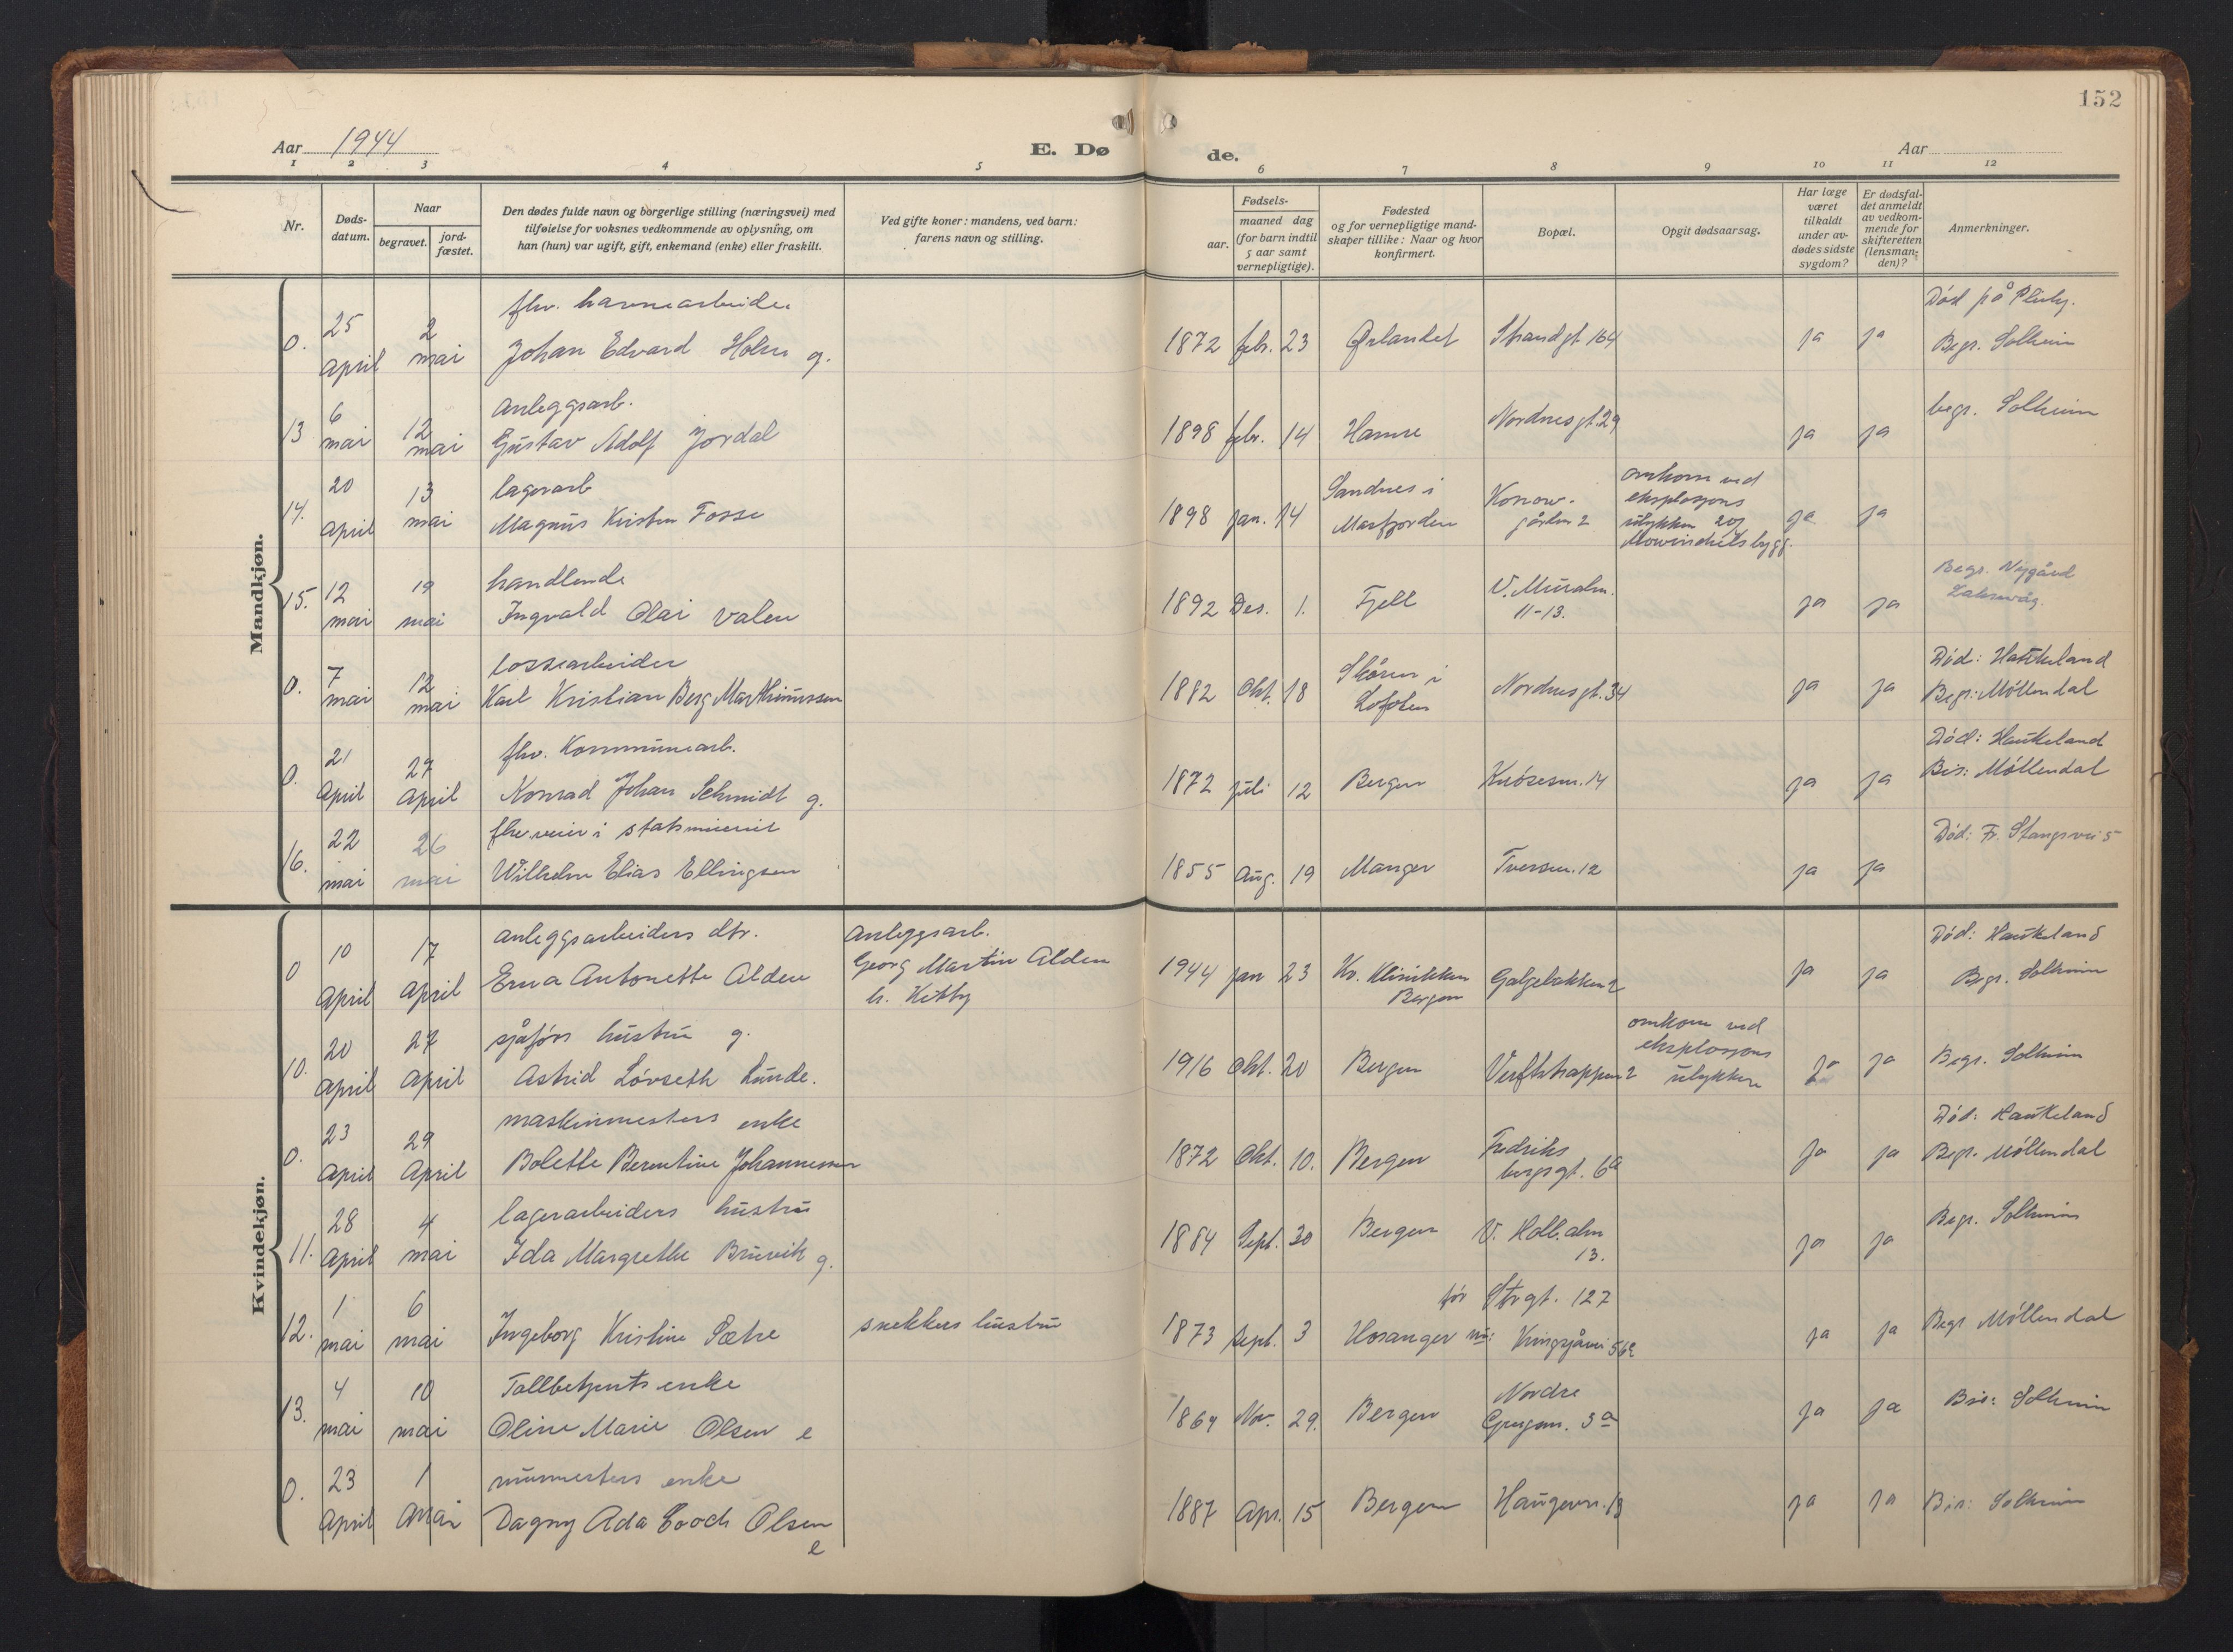 152
Aar 1944
E. Dø
de.
Aar
1 2 3 4 5 6 7 8 9 10 11 12
Nr.
Døds-
datum.
Naar
begravet.
jord-
fæstet.
Den dødes fulde navn og borgerlige stilling (næringsvei) med
tilføielse for voksnes vedkommende av oplysning, om
han (hun) var ugift, gift, enkemand (enke) eller fraskilt.
Ved gifte koner: mandens, ved barn:
farens navn og stilling.
Fødsels-
aar.
maaned dag
(for barn indtil
5 aar samt
vernepligtige).
Fødested
og for vernepligtige mand-
skaper tillike: Naar og hvor
konfirmert.
Bopæl.
Opgit dødsaarsag.
Har læge
været
tilkaldt
under av-
dødes sidste
sygdom?
Er dødsfal-
det anmeldt
av vedkom-
mende for
skifteretten
(lensman-
den)?
Anmerkninger.
Mandkjøn.
0. 25 april 2 mai
fhv. havnearbeider
Johan Edvard Holm g.
1872 febr. 23 Ørlandet Strandgt. 164 ja ja
Død på
Begr. Solheim
13 6 mai 12 mai
Anleggsarb.
Gustav Adolf Jordal
1898 febr. 14 Hamre Nordnesgt. 29 ja ja
begr. Solheim
14. 20 april 13 mai
lagerarb
Magnus Kristen Fosse
1898 jan. 14
Sandnes i
Masfjorden
Konow-
gården 2
omkom ved
eksplosjons
ulykken 20/
Mowinckels bygg.
ja ja
15. 12 mai 19 mai
handlende
Ingvald Olai Valen
1892 Des. 1. Fjell
V. Muralm.
11-13.
ja ja
Begr. Nygård
Laksevåg.
0. 7 mai 12 mai
lossearbeider
Karl Kristian Berg Marthinussen
1882 Okt. 18
i
Lofoten
Nordnesgt. 34 ja ja
Død: Haukeland
Begr: Møllendal
0. 21 April 27 April
fhv. Kommunearb.
Konrad Johan Schmidt g.
1872 juli 12 Bergen Knøsesm. 14 ja ja
Død: Haukeland
Bis: Møllendal
16. 22 mai 26 mai
fhv. veier i
Wilhelm Elias Ellingsen
1855 Aug. 19 Manger Tversm. 12 ja ja
Død: Fr. Stangsvei 5
Kvindekjøn.
0 10 April 17 April
anleggsarbeiders dtr.
Erna Antonette Alden
Anleggsarb.
Georg Martin Alden
h. Kitty
1944 jan 23
Kv. Klinikken
Bergen
Galgebakken 2 ja ja
Død: Haukeland
Begr. Solheim
10. 20 April 27 April
sjåførs hustru g.
Astrid Løvseth Lunde.
1916 Okt. 20 Bergen Verftstrappen 2
omkom ved
eksplosjons
ulykken
ja ja
Begr. Solheim
0. 23 April 29 April
maskinmesters enke
Bolette Berentine Johannessen
1872 Okt. 10. Bergen
Fredriks
bergsgt. 6a
ja ja
Død: Haukeland
Begr. Møllendal
11. 28 April 4 mai
lagerarbeiders hustru
Ida Margrethe Bruvik g.
1884 Sept. 30 Bergen
V. Holb. alm
13.
ja ja
Begr. Solheim
12. 1 mai 6 mai
Ingeborg Kristine Sætre
snekkers hustru
1873 Sept. 3 Hosanger
før Strgt. 127
nå: Kringsjåvei 56a
ja ja
Begr Møllendal
13. 4 mai 10 mai
Tollbetjents enke
Oline Marie Olsen e
1869 Nov. 29. Bergen
Nordre
3a
ja ja
Bis: Solheim
0. 23 April 1 Mai
murmesters enke
Dagny Ada Gooch Olsen
e
1887 Apr. 15 Bergen Haugevn. 13 ja ja
Bis: Solheim